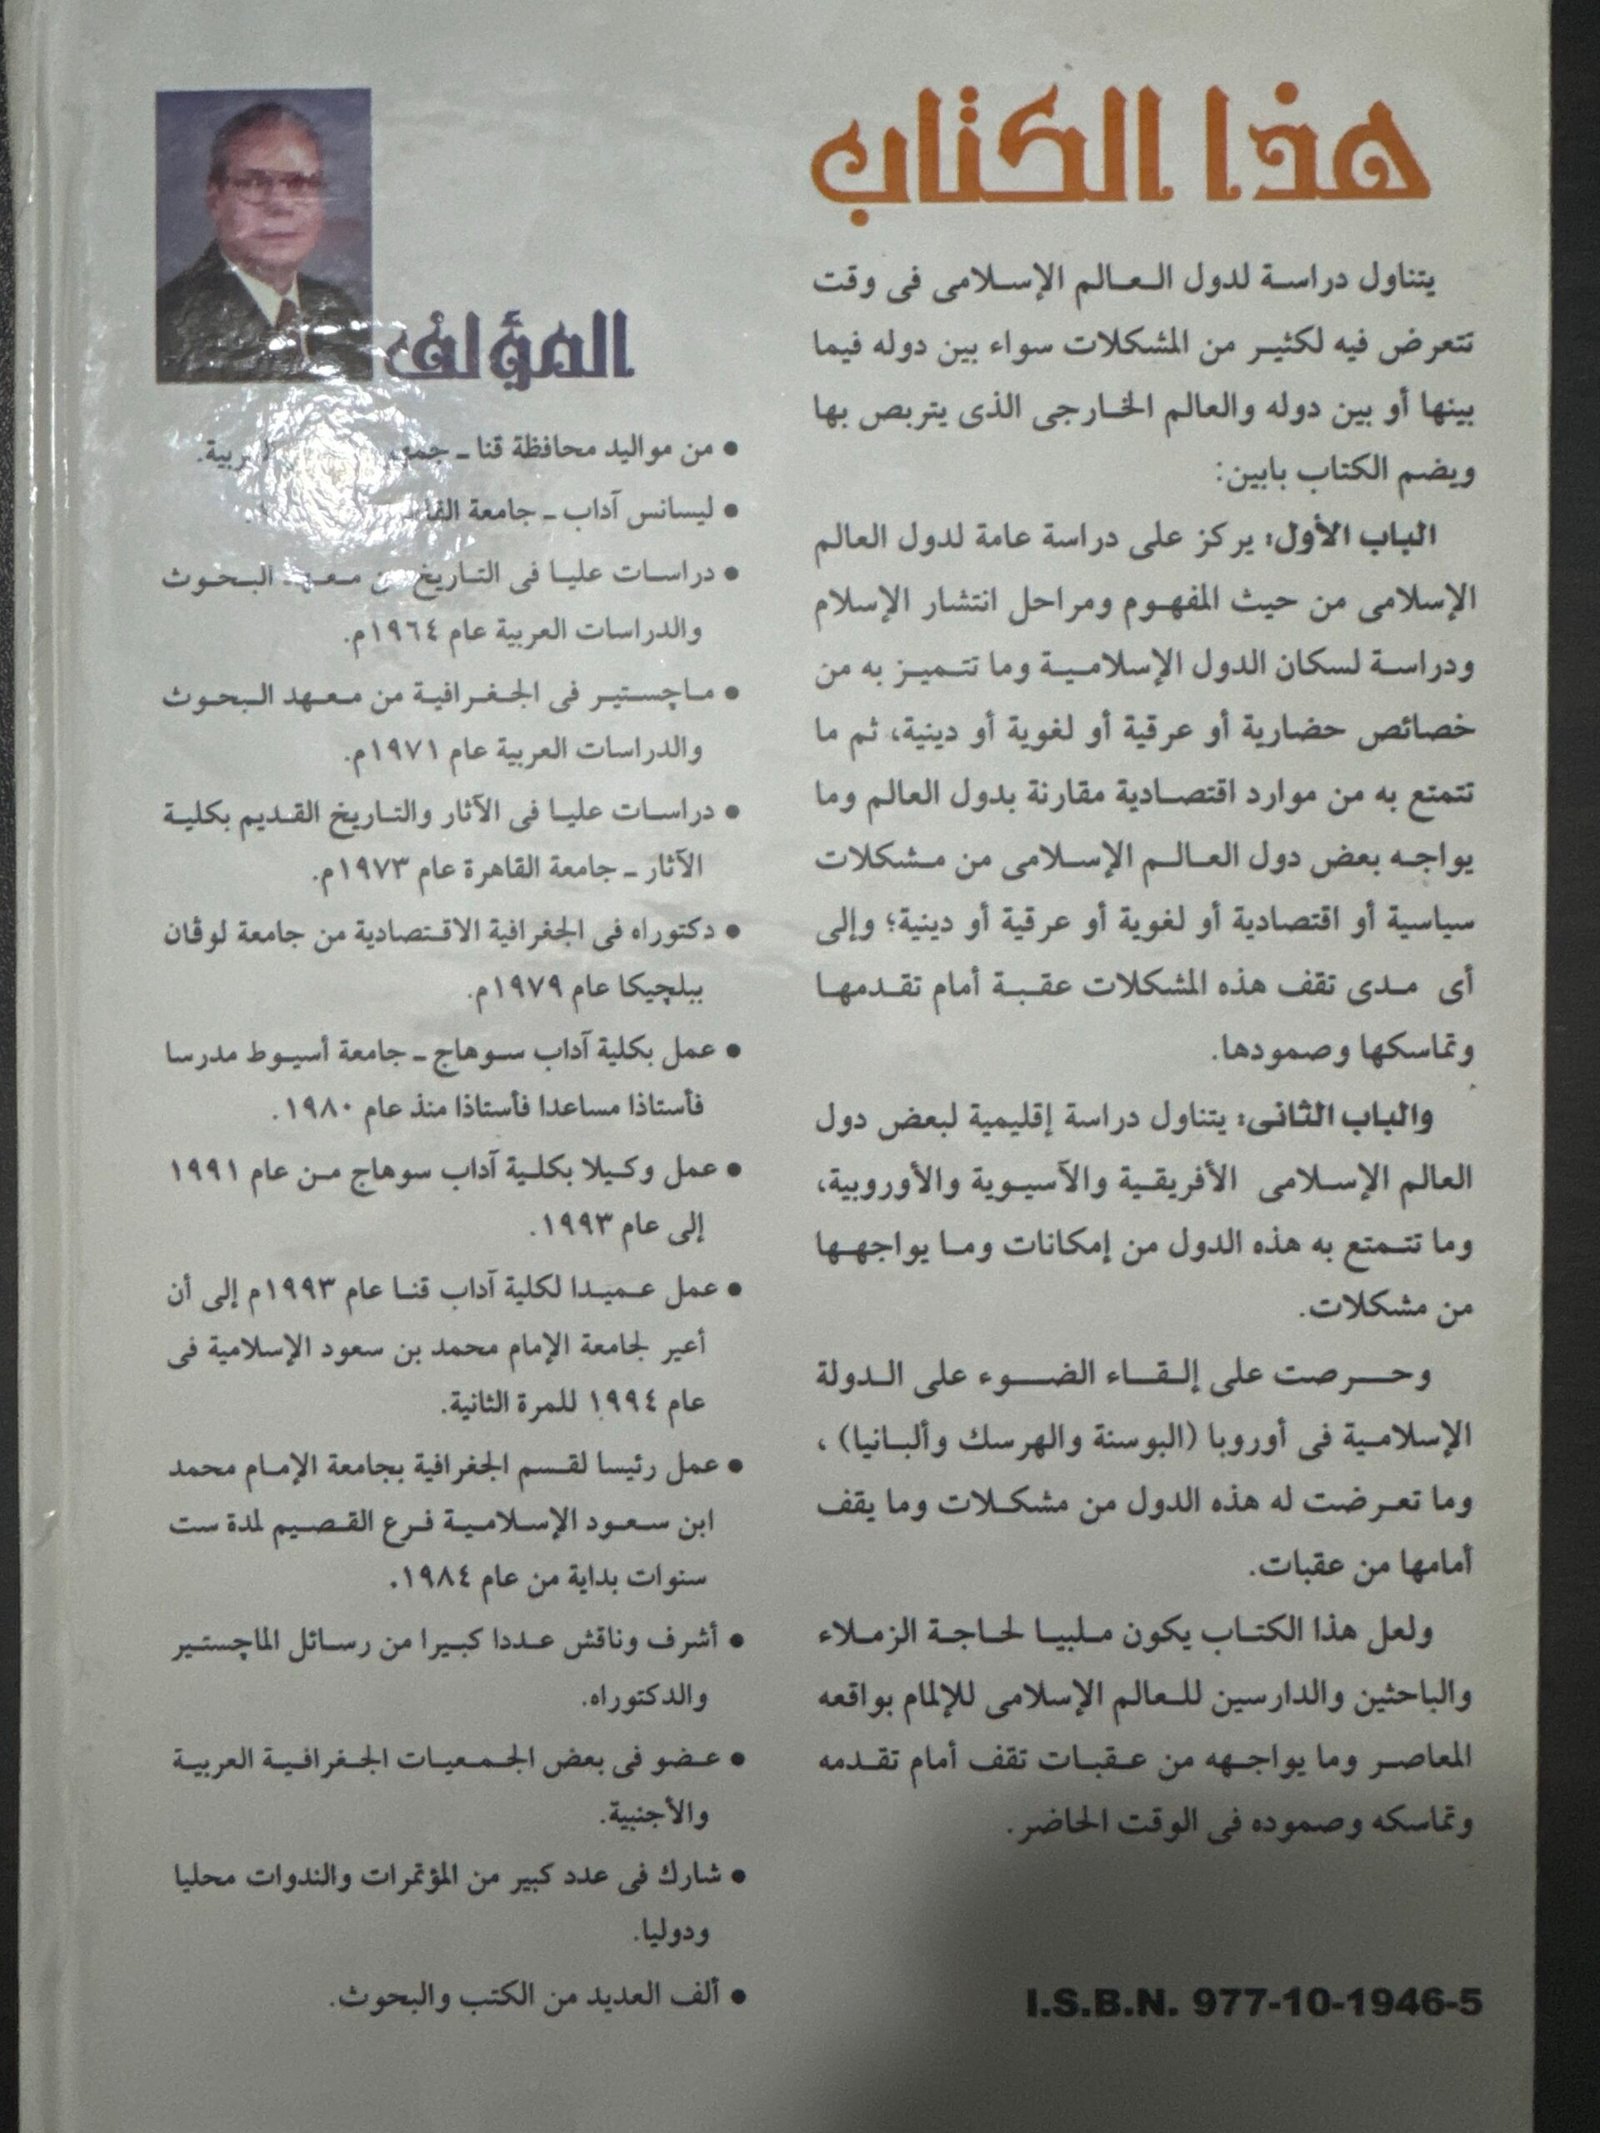 هذا الكتاب
يتناول دراسة لدول العالم الإسلامى فى وقت
تتعرض فيه لكثير من المشكلات سواء بين دوله فيما
بينها أو بين دوله والعالم الخارجى الذى يتربص بها
ويضم الكتاب بابين:
الباب الأول: يركز على دراسة عامة لدول العالم
الإسلامى من حيث المفهوم ومراحل انتشار الإسلام
ودراسة لسكان الدول الإسلامية وما تتميز به من
خصائص حضارية أو عرقية أو لغوية أو دينية، ثم ما
تتمتع به من موارد اقتصادية مقارنة بدول العالم وما
يواجه بعض دول العالم الإسلامى من مشكلات
سياسية أو اقتصادية أو لغوية أو عرقية أو دينية؛ وإلى
أى مدى تقف هذه المشكلات عقبة أمام تقدمها
وتماسكها وصمودها.
والباب الثانى: يتناول دراسة إقليمية لبعض دول
العالم الإسلامى الأفريقية والآسيوية والأوروبية،
وما تتمتع به هذه الدول من إمكانات وما يواجهها
من مشكلات.
وحرصت على إلقاء الضوء على الدولة
الإسلامية فى أوروبا (البوسنة والهرسك وألبانيا) ،
وما تعرضت له هذه الدول من مشكلات وما يقف
أمامها من عقبات.
ولعل هذا الكتاب يكون ملبيا لحاجة الزملاء
والباحثين والدارسين للعالم الإسلامى للإلمام بواقعه
المعاصر وما يواجهه من عقبات تقف أمام تقدمه
وتماسكه وصموده فى الوقت الحاضر.
I.S.B.N. 977-10-1946-5
المؤلف
• من مواليد محافظة قنا ـ
• ليسانس آداب ـ جامعة
• دراسات عليا فى التاريخ من معهد البحوث
والدراسات العربية عام ١٩٦٤م.
• ماچستير فى الجغرافية من معهد البحوث
والدراسات العربية عام ١٩٧١م.
• دراسات عليا فى الآثار والتاريخ القديم بكلية
الآثار ـ جامعة القاهرة عام ١٩٧٣م.
• دكتوراه فى الجغرافية الاقتصادية من جامعة لوڤان
ببلچيكا عام ١٩٧٩م.
• عمل بكلية آداب سوهاج ـ جامعة أسيوط مدرسا
فأستاذا مساعدا فأستاذا منذ عام ١٩٨٠.
• عمل وكيلا بكلية آداب سوهاج من عام ١٩٩١
إلى عام ١٩٩٣.
• عمل عميدا لكلية آداب قنا عام ١٩٩٣م إلى أن
أعير لجامعة الإمام محمد بن سعود الإسلامية فى
عام ١٩٩٤ للمرة الثانية.
• عمل رئيسا لقسم الجغرافية بجامعة الإمام محمد
ابن سعود الإسلامية فرع القصيم لمدة ست
سنوات بداية من عام ١٩٨٤.
• أشرف وناقش عددا كبيرا من رسائل الماچستير
والدكتوراه.
• عضو فى بعض الجمعيات الجغرافية العربية
والأجنبية.
• شارك فى عدد كبير من المؤتمرات والندوات محليا
ودوليا.
• ألف العديد من الكتب والبحوث.